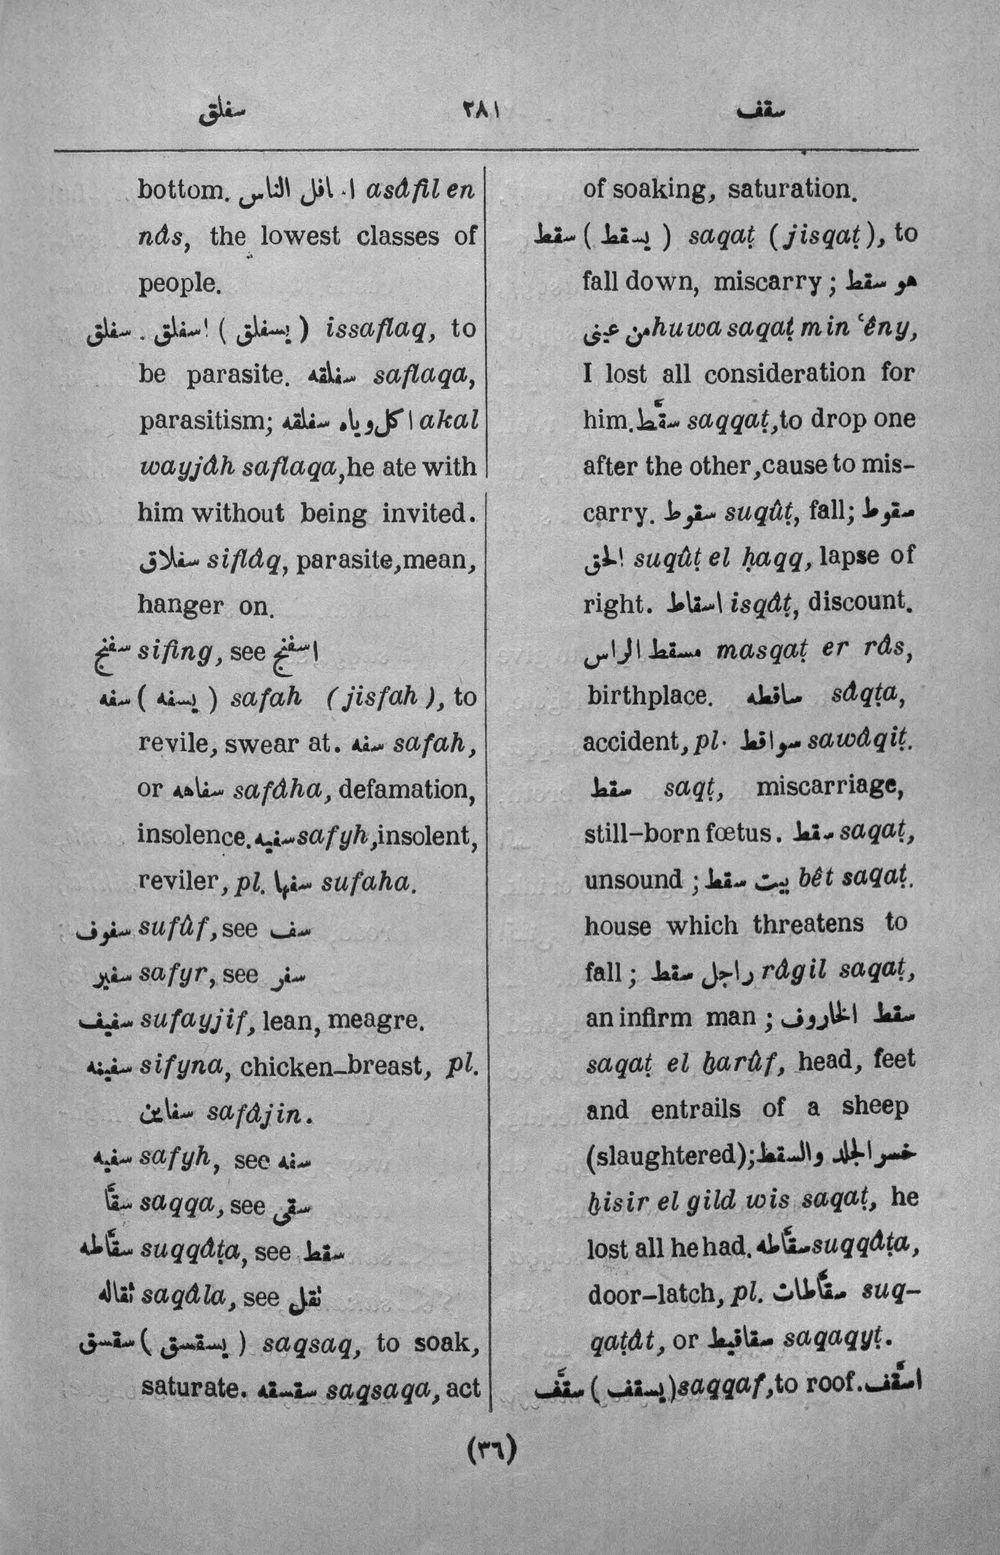 سفلق ٢٨١ سقف
bottom. اسافل الناس asâfil en
nâs, the lowest classes of
people.
سفلق . اسفلق ( يسفلق ) issaflaq, to
be parasite. سفلقه saflaqa,
parasitism; اكل وياه سفلقه akal
wayjâh saflaqa, he ate with
him without being invited.
سفلاق siflâq, parasite, mean,
hanger on.
سفنج sifing, see اسفنج
سفه ( يسفه ) safah (jisfah), to
revile, swear at. سفه safah,
or سفاهه safâha, defamation,
insolence. سفيه safyh, insolent,
reviler, pl. سفها sufaha.
سفوف sufûf, see سف
سفير safyr, see سفر
سفيف sufayjif, lean, meagre.
سفينه sifyna, chicken-breast, pl.
سفاين safâjin.
سفيه safyh, see سفه
سقّا saqqa, see سقى
سقّاطه suqqâṭa, see سقط
ثقاله saqâla, see ثقل
سقسق ( يسقسق ) saqsaq, to soak,
saturate. سقسقه saqsaqa, act
of soaking, saturation.
سقط ( يسقط ) saqaṭ (jisqaṭ), to
fall down, miscarry ; هو سقط
من عينى huwa saqaṭ min ʿêny,
I lost all consideration for
him. سقّط saqqaṭ, to drop one
after the other, cause to mis-
carry. سقوط suqûṭ, fall; سقوط
الحق suqûṭ el ḥaqq, lapse of
right. اسقاط isqâṭ, discount.
مسقط الراس masqaṭ er râs,
birthplace. ساقطه sâqṭa,
accident, pl. سواقط sawâqiṭ.
سقط saqṭ, miscarriage,
still-born fœtus. سقط saqaṭ,
unsound ; بيت سقط bêt saqaṭ.
house which threatens to
fall ; راجل سقط râgil saqaṭ,
an infirm man ; سقط الخاروف
saqaṭ el ḫarûf, head, feet
and entrails of a sheep
(slaughtered); خسر الجلد والسقط
ḫisir el gild wis saqaṭ, he
lost all he had. سقّاطه suqqâṭa,
door-latch, pl. سقّاطات suq-
qaṭât, or سقاقيط saqaqyṭ.
سقّف ( يسقف ) saqqaf, to roof. اسقّف
(٣٦)